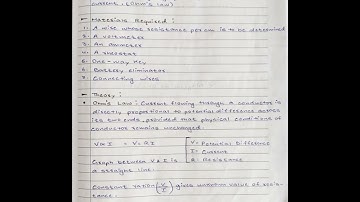 current. (Ohm's Law)
Materials Required :
1. A wire whose resistance per cm is to be determined
2. A voltmeter
3. An ammeter
4. A rheostat
5. One-way key
6. Battery eliminator
7. Connecting wires
Theory :
Ohm's Law : Current flowing through a conductor is
directly proportional to potential difference across
its two ends, provided that physical conditions of
conductor remains unchanged.
V ∝ I V = RI
V = Potential Difference
I = Current
R = Resistance
Graph between V & I is
a straight line.
Constant ratio (V/I) gives unknown value of resis-
tance.